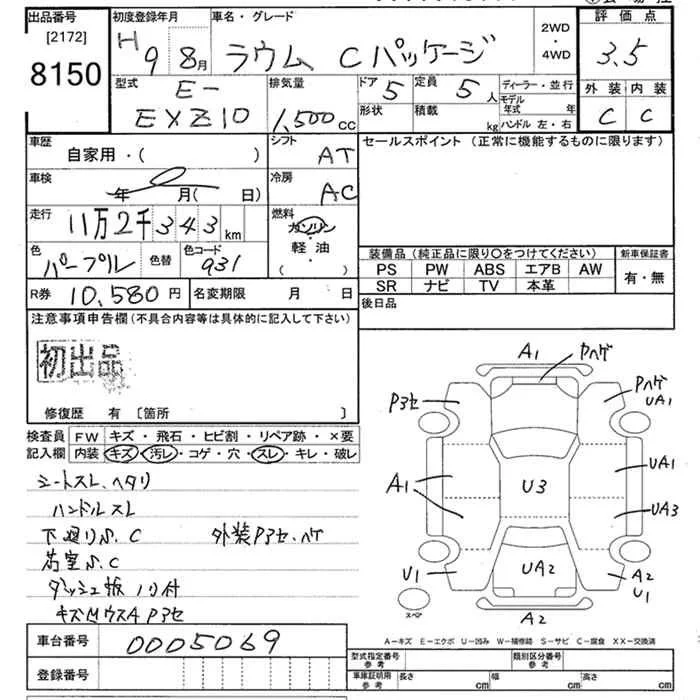 出品番号 初度登録年月 車名・グレード 2WD・4WD 評価点
[2172]
8150
H 9 8月 ラウム Cパッケージ 3.5
型式 排気量 ドア 定員 ディーラー・並行 外装 内装
E-
EXZ10 1,500cc 5 5人 モデル年式 年 C C
形状 積載 kg ハンドル 左・右
車歴 シフト セールスポイント (正常に機能するものに限ります)
自家用・( ) AT
車検 年 月( 日) 冷房 AC
走行 11万2千343km 燃料 ガソリン・軽・油・( )
色 パープル 色替 色コード 931
装備品 (純正品に限り○をつけてください) 新車保証書
PS PW ABS エアB AW 有・無
SR ナビ TV 本革
R券 10,580円 名変期限 月 日 後日品
注意事項申告欄 (不具合内容等は具体的に記入して下さい)
初出品
修復歴 有 [箇所 ]
検査員 FW キズ・飛石・ヒビ割・リペア跡・×要
記入欄 内装 キズ・汚レ・コゲ・穴・スレ・キレ・破レ
シートスレ、ヘタリ
ハンドルスレ
下廻りS.C 外装P3セ、ハゲ
S.C
ダッシュ板ノリ付
P3セ
A1 Pハゲ
P3セ Pハゲ
UA1
A1 U3 UA1
UA3
U1 UA2 A2
U1
スペア A2
A-キズ E-エクボ U-凹み W-補修跡 S-サビ C-腐食 XX-交換済
車台番号 0005069
登録番号
型式指定番号 参考 類別区分番号 参考
車庫証明用 参考 長さ cm 幅 cm 高さ cm